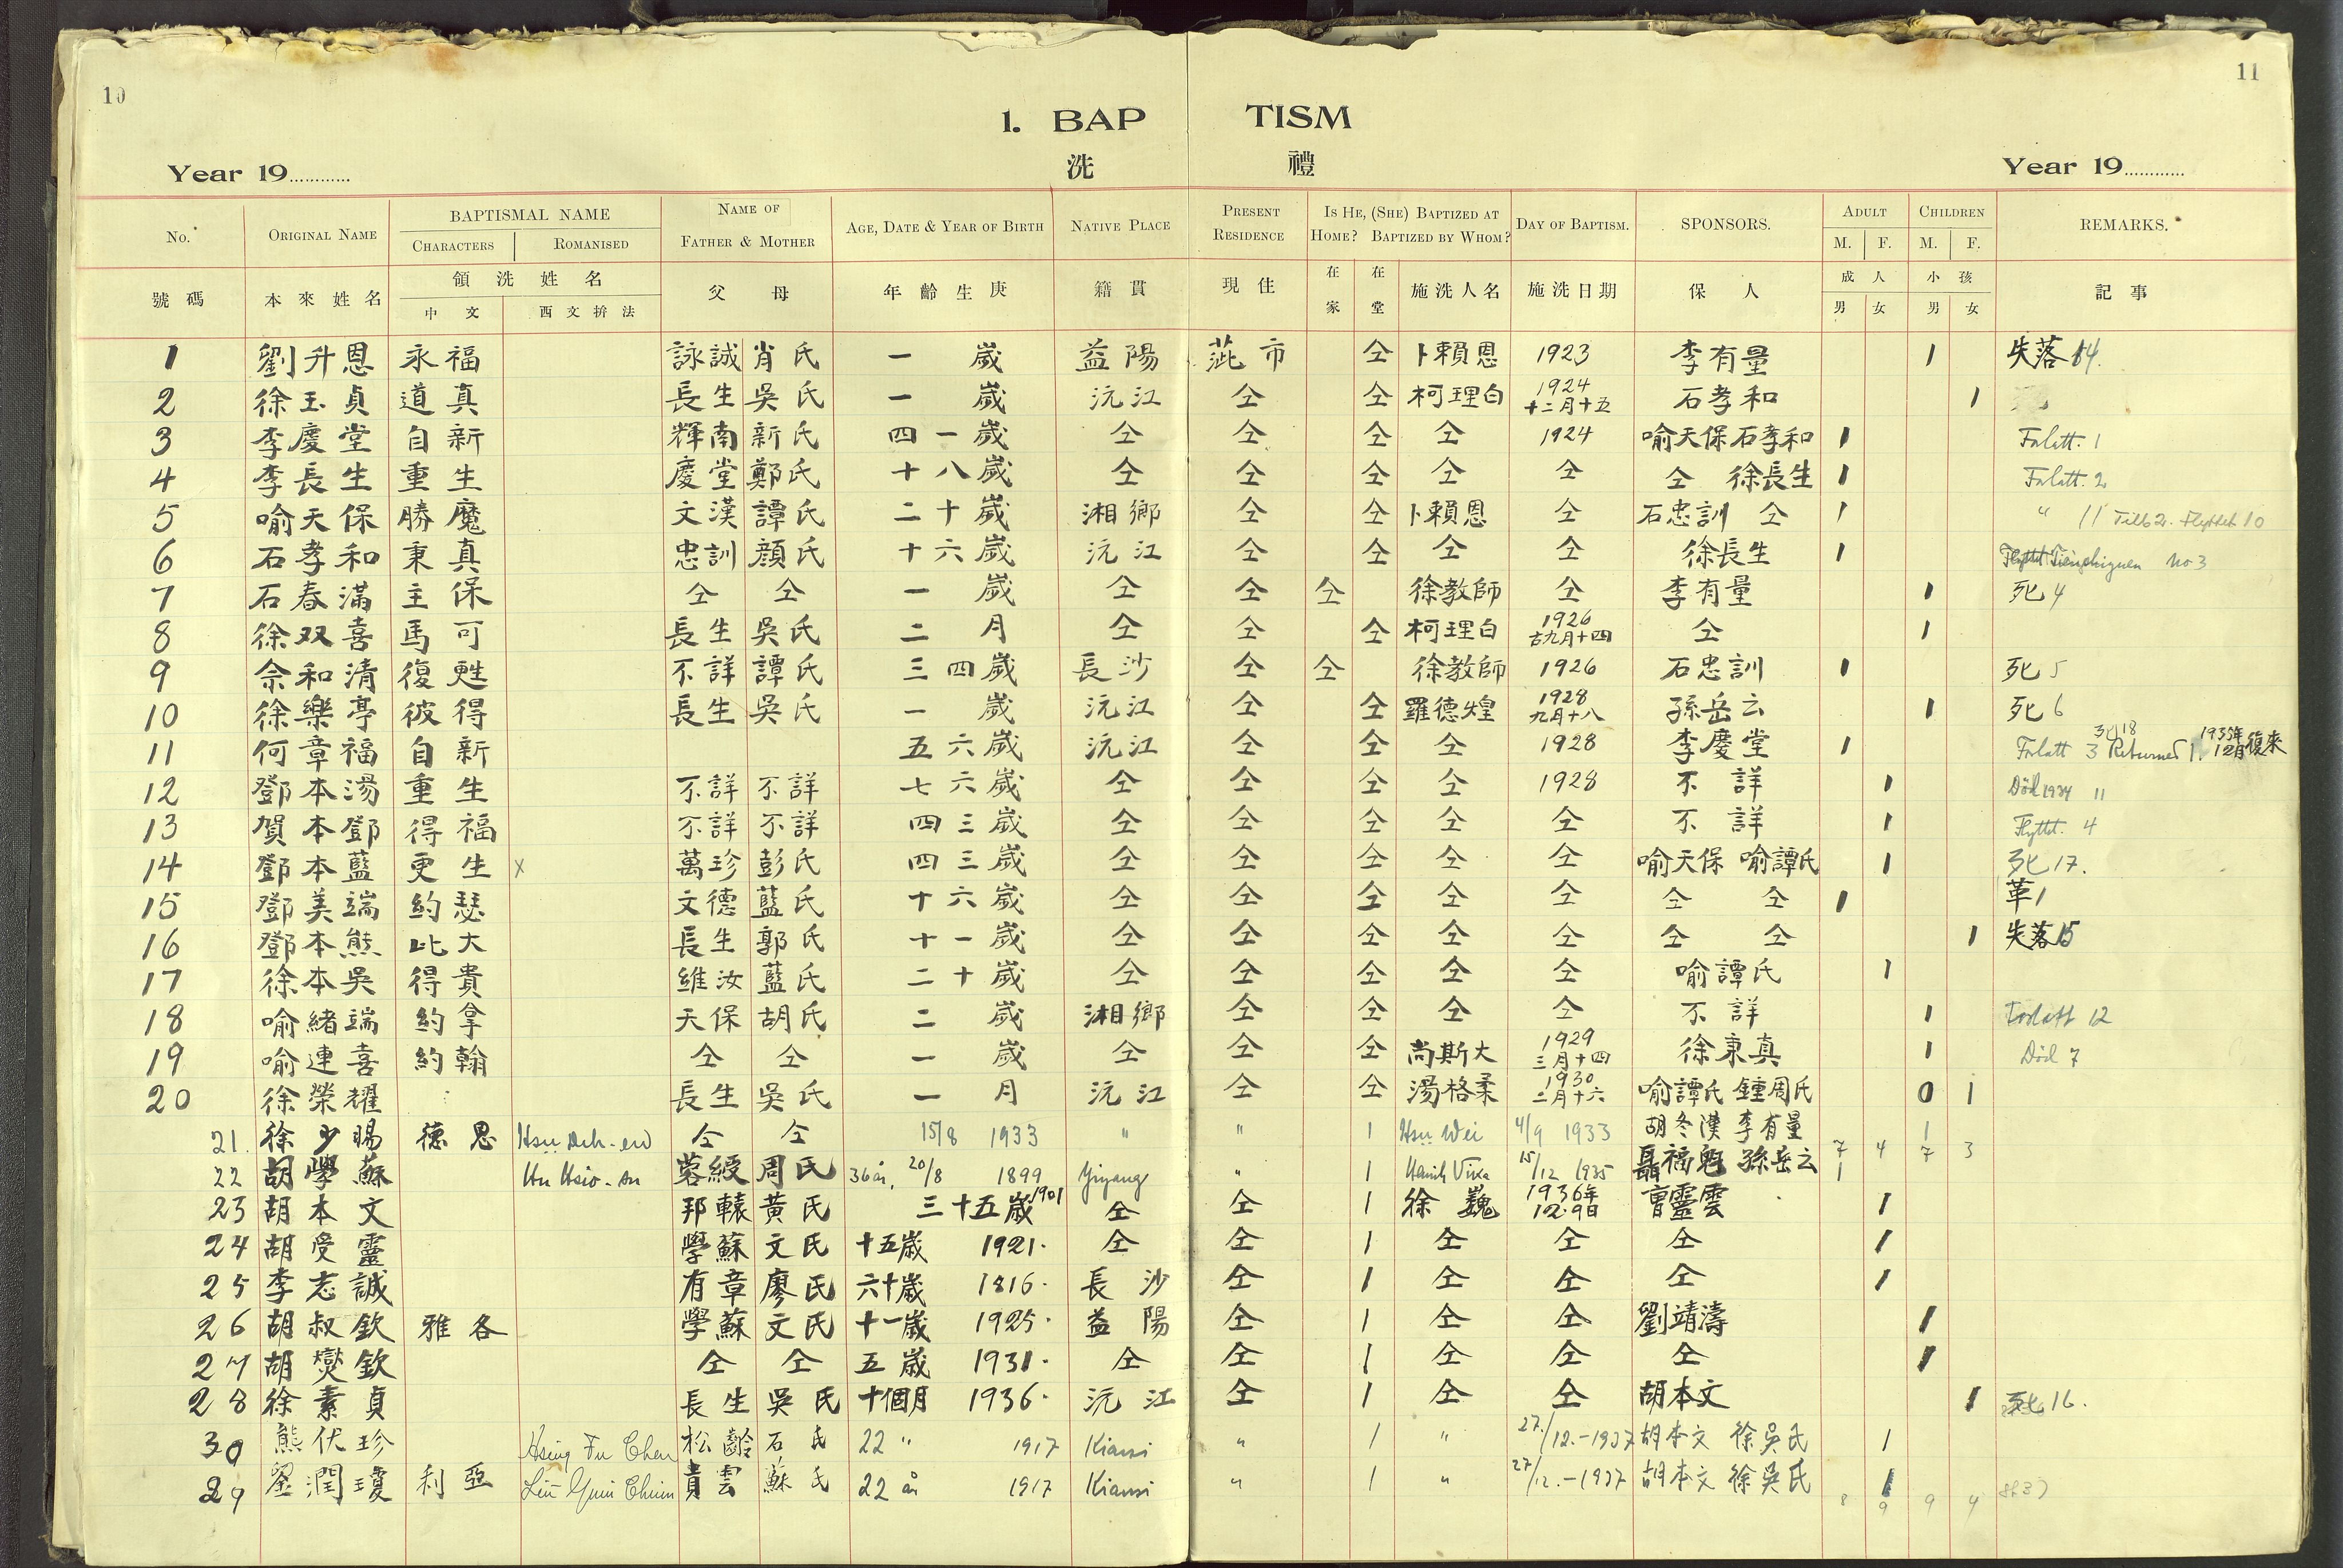 10
11
1. BAP TISM
洗 禮
Year 19............ Year 19............
No. ORIGINAL NAME BAPTISMAL NAME CHARACTERS ROMANISED NAME OF FATHER & MOTHER AGE, DATE & YEAR OF BIRTH NATIVE PLACE PRESENT RESIDENCE IS HE, (SHE) BAPTIZED AT HOME? BAPTIZED BY WHOM? DAY OF BAPTISM. SPONSORS. ADULT M. F. CHILDREN M. F. REMARKS.
號碼 本來姓名 領洗姓名 中文 西文拚法 父母 年齡生庚 籍貫 現住 在家 在堂 施洗人名 施洗日期 保人 成人 男 女 小孩 男 女 記事
1 劉升恩 永福 詠誠 肖氏 一歲 益陽 茈市 仝 卜賴恩 1923 李有量 1 失落 14.
2 徐玉貞 道真 長生 吳氏 一歲 沅江 仝 仝 柯理白 1924 十二月十五 石孝和 1
3 李慶堂 自新 輝南 新氏 四一歲 仝 仝 仝 仝 1924 喻天保 石孝和 1 Forlatt. 1
4 李長生 重生 慶堂 鄭氏 十八歲 仝 仝 仝 仝 仝 仝 徐長生 1 Forlatt. 2
5 喻天保 勝魔 文漢 譚氏 二十歲 湘鄉 仝 仝 卜賴恩 仝 石忠訓 仝 1 " 11 Tilb 2. Flyttet 10
6 石孝和 秉真 忠訓 顏氏 十六歲 沅江 仝 仝 仝 仝 徐長生 1 Flyttet No 3
7 石春滿 主保 仝 仝 一歲 仝 仝 仝 徐教師 仝 李有量 1 死 4
8 徐双喜 馬可 長生 吳氏 二月 仝 仝 仝 柯理白 1926 古九月十四 仝 1
9 佘和清 復甦 不詳 譚氏 三四歲 長沙 仝 仝 徐教師 1926 石忠訓 1 死 5
10 徐樂亭 彼得 長生 吳氏 一歲 沅江 仝 仝 羅德煌 1928 九月十八 孫岳云 1 死 6
11 何章福 自新 五六歲 沅江 仝 仝 仝 1928 李慶堂 1 Forlatt 3 死18 Returned 1935年12月復來
12 鄧本湯 重生 不詳 不詳 七六歲 仝 仝 仝 仝 1928 不詳 1 Död 1934 11
13 賀本鄧 得福 不詳 不詳 四三歲 仝 仝 仝 仝 仝 不詳 1 Flyttet. 4
14 鄧本藍 更生 x 萬珍 彭氏 四三歲 仝 仝 仝 仝 仝 喻天保 喻譚氏 1 死 17.
15 鄧美端 約瑟 文德 藍氏 十六歲 仝 仝 仝 仝 仝 仝 仝 1 革 1
16 鄧本熊 比大 長生 郭氏 十一歲 仝 仝 仝 仝 仝 仝 仝 1 失落 15
17 徐本吳 得貴 維汝 藍氏 二十歲 仝 仝 仝 仝 仝 喻譚氏 1
18 喻緒端 約拿 天保 胡氏 二歲 湘鄉 仝 仝 仝 仝 不詳 1 Forlatt 12
19 喻連喜 約翰 仝 仝 一歲 仝 仝 仝 尚斯大 1929 三月十四 徐秉真 1 Död 7
20 徐榮耀 長生 吳氏 一月 沅江 仝 仝 湯格柔 1930 二月十六 喻譚氏 鍾周氏 0 1
21. 徐少賜 德恩 Hsu Deh-en 仝 仝 15/8 1933 " " 1 Hsu Wei 4/9 1933 胡冬漢 李有量 1
7 4 7 3
22 胡學蘇 Hu Hsio-su 蓉綬 周氏 36 år, 20/8 1899 Yiyang " 1 15/12 1935 聶福魁 孫岳云 1
23 胡本文 邦轅 黃氏 三十五歲 1901 仝 仝 1 徐巍 1936年 12.9日 曹靈雲 1
24 胡受靈 學蘇 文氏 十五歲 1921. 仝 仝 1 仝 仝 仝 1
25 李志誠 有章 廖氏 六十歲 1816. 長沙 仝 1 仝 仝 仝 1
26 胡叔欽 雅各 學蘇 文氏 十一歲 1925. 益陽 仝 1 仝 仝 劉靖濤 1
27 胡爕欽 仝 仝 五歲 1931. 仝 仝 1 仝 仝 仝 1
28 徐素貞 長生 吳氏 十個月 1936. 沅江 仝 1 仝 仝 胡本文 1 死 16.
30 熊伏珍 Hsiung Fu Chen 松齡 石氏 22 " 1917 Kiansi " 1 " 27./12.-1937 胡本文 徐吳氏 1
29 劉潤瓊 利亞 Liu Yuin Chiun 貴雲 蘇氏 22 år 1917 Kiansi " 1 " 27/12.-1937 胡本文 徐吳氏 1
8 9 9 4